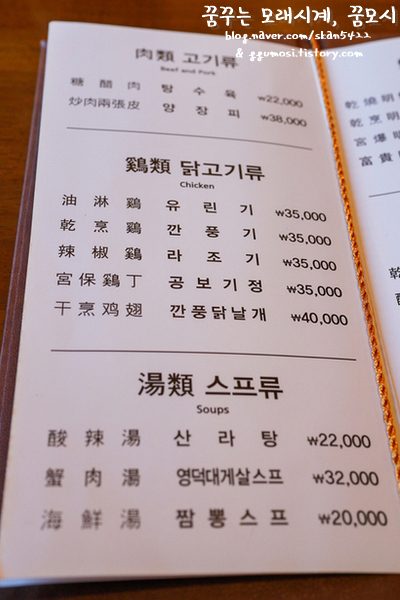 꿈꾸는 모래시계, 꿈모시
blog.naver.com/skan5422
& ggumosi.tistory.com
肉類 고기류
Beef and Pork
糖醋肉 탕수육 ₩22,000
炒肉兩張皮 양장피 ₩38,000
鷄類 닭고기류
Chicken
油淋鷄 유린기 ₩35,000
乾烹鷄 깐풍기 ₩35,000
辣椒鷄 라조기 ₩35,000
宮保鷄丁 공보기정 ₩35,000
干烹鸡翅 깐풍닭날개 ₩40,000
湯類 스프류
Soups
酸辣湯 산라탕 ₩22,000
蟹肉湯 영덕대게살스프 ₩32,000
海鮮湯 짬뽕스프 ₩20,000
乾燒明
乾烹明
宮爆明
富貴